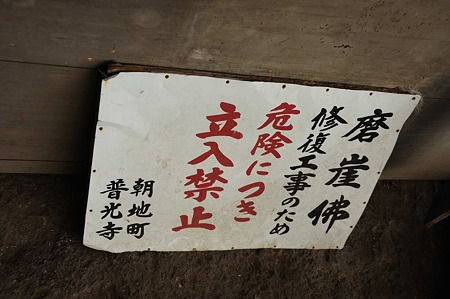 磨崖佛
修復工事のため
危険につき
立入禁止
朝地町
普光寺